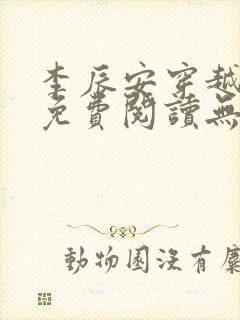 李辰安穿越
免費閱讀無
動物園沒有麋